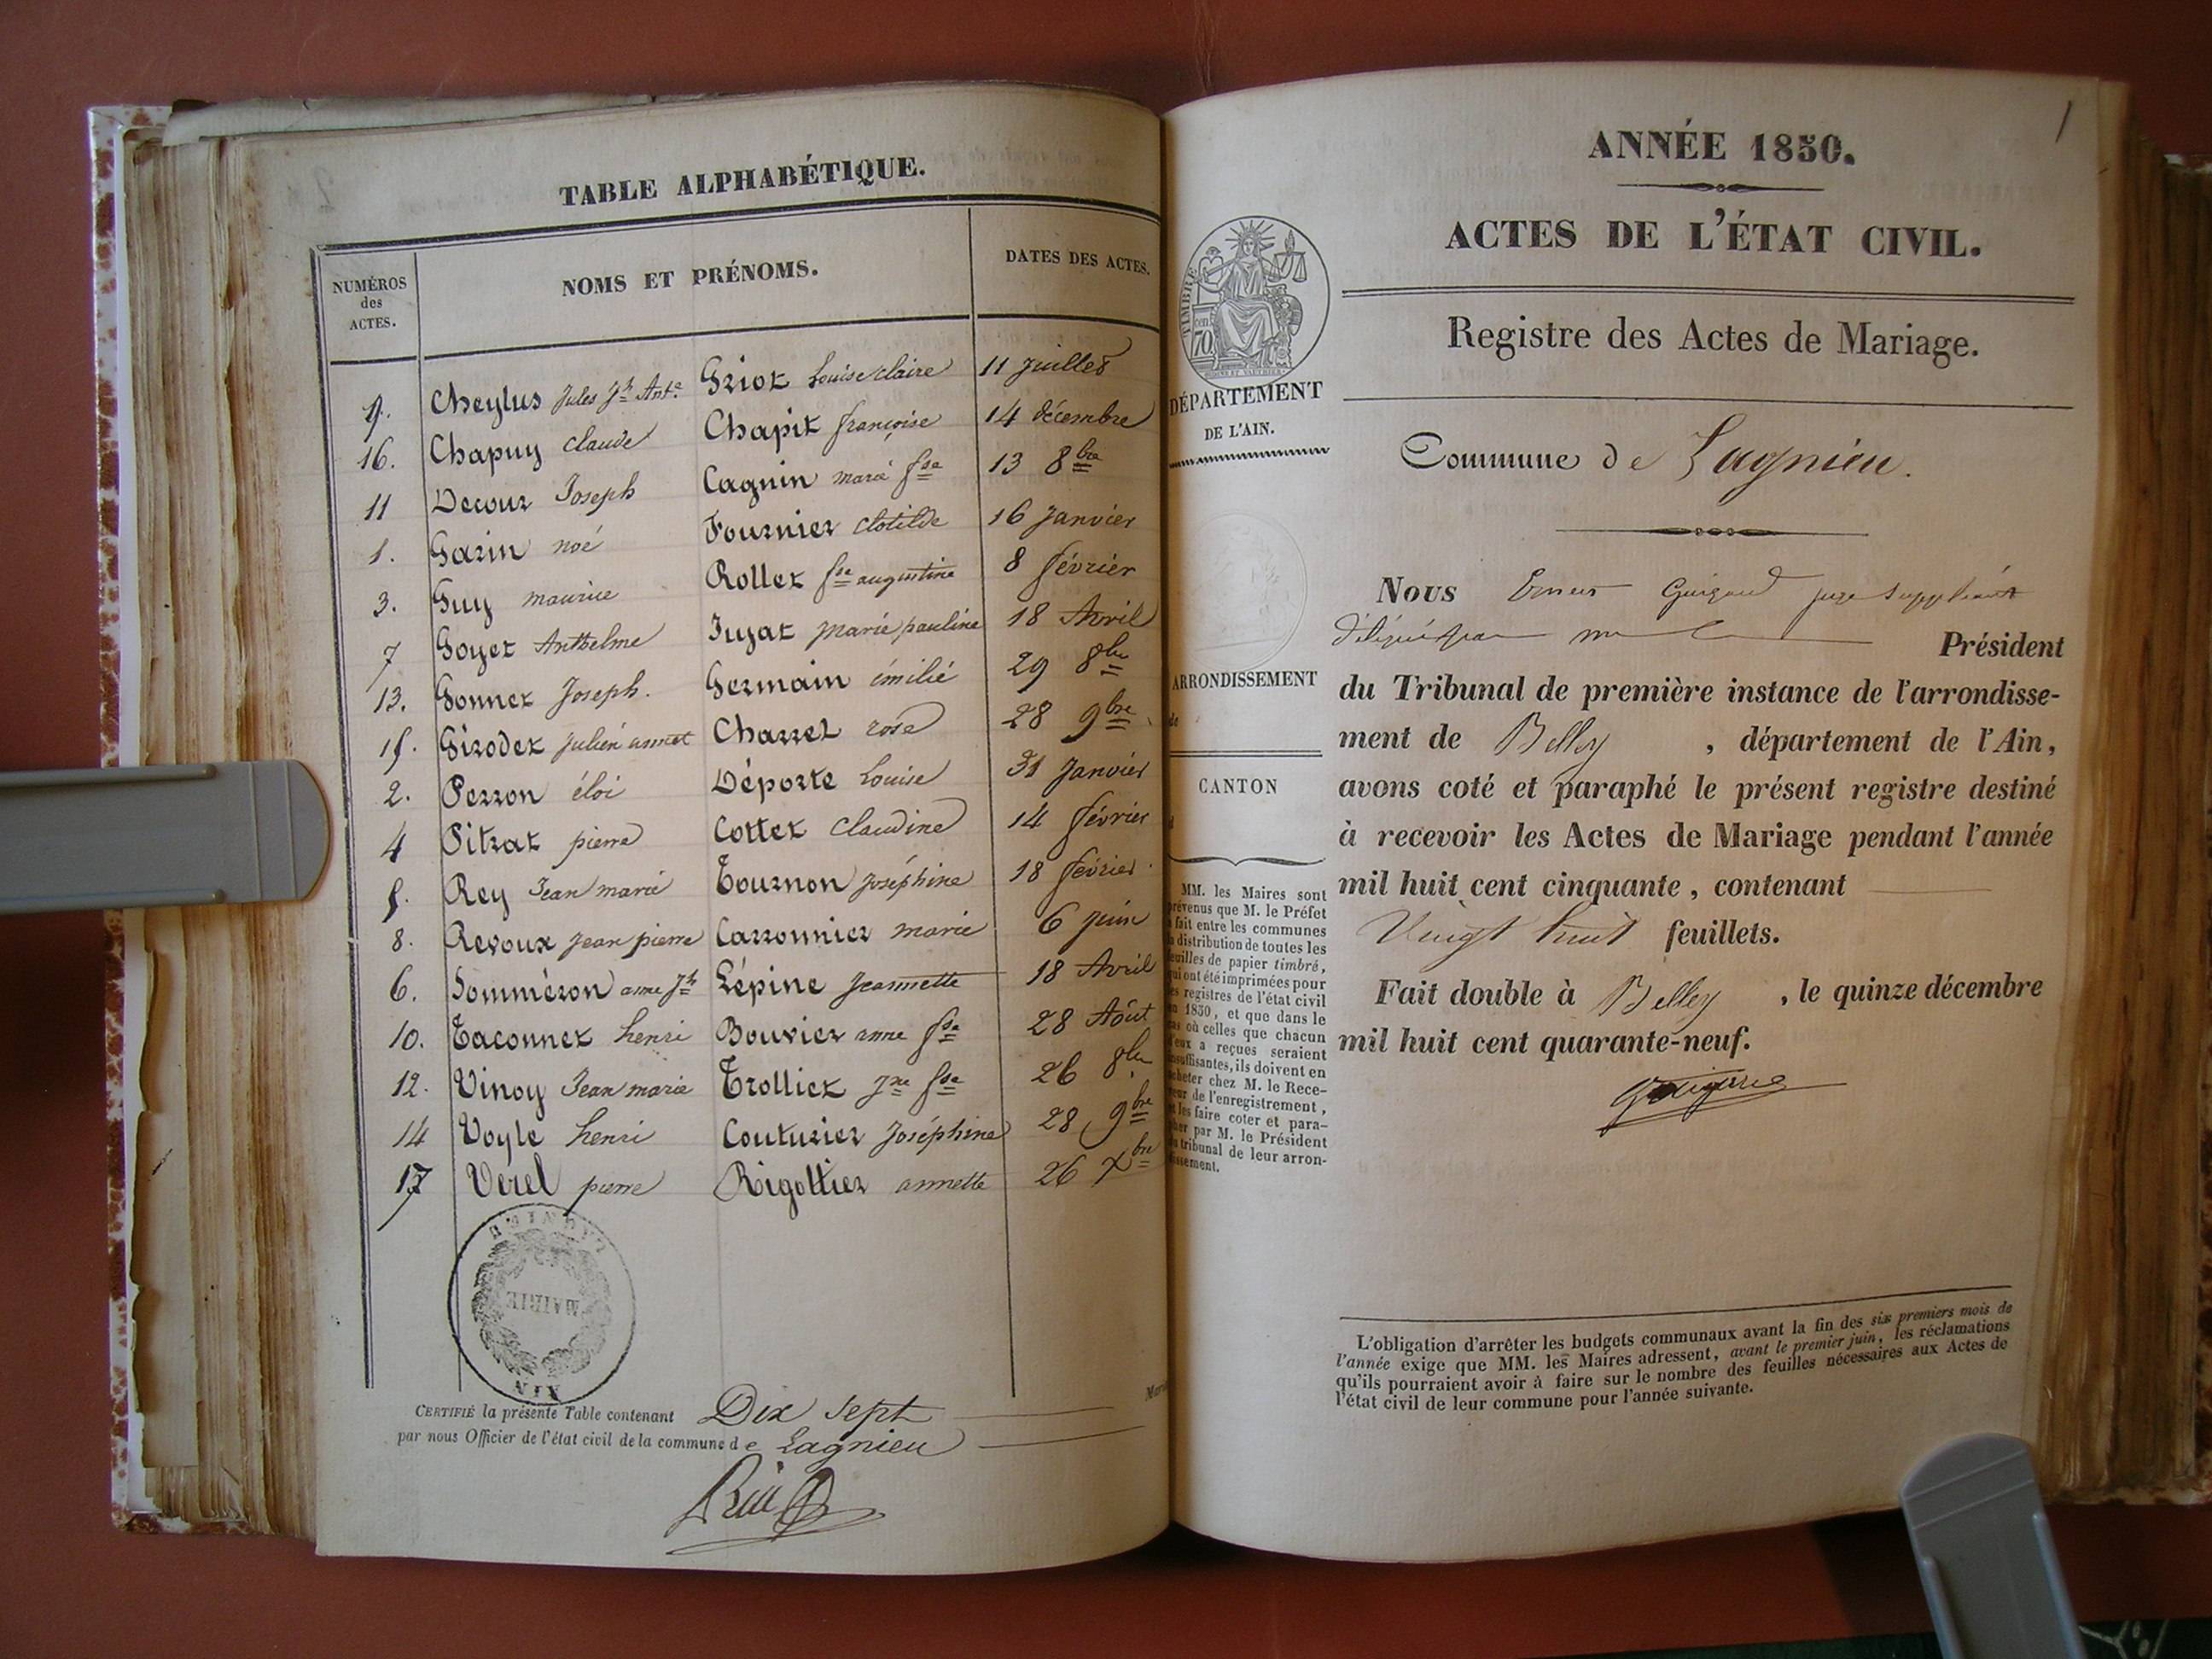 TABLE ALPHABÉTIQUE.
NUMÉROS des ACTES. NOMS ET PRÉNOMS. DATES DES ACTES.
9. Cheylus Jules Jh Ant.e Griot Louise claire 11 Juillet
16. Chapuy claude Chapit françoise 14 décembre
11 Decour Joseph Cagnin marie fse 13 8bre
1. Garin noé Fournier clotilde 16 Janvier
3. Guy maurice Rollet fse augustine 8 février
7 Goyet Anthelme Jujat marie pauline 18 Avril
13. Gonnet Joseph. Germain émilie 29 8bre
15. Girodet Julien annet Charrel rose 28 9bre
2. Perron éloi Déporte Louise 31 Janvier
4 Pitrat pierre Cottet Claudine 14 février
5. Rey Jean marie Tournon Joséphine 18 février
8. Revoux Jean pierre Carronnier marie 6 Juin
6. Somméron anne Jh Lépine Jeannette 18 Avril
10. Taconnet henri Bouvier anne fse 28 Août
12. Vinoy Jean marie Trolliet Jne fse 26 8bre
14 Voyle henri Couturier Joséphine 28 9bre
17 Verel pierre Rigottier annette 26 Xbre
MAIRIE
AIN
CERTIFIÉ la présente Table contenant Dix sept
par nous Officier de l'état civil de la commune de Lagnieu
1
ANNÉE 1850.
ACTES DE L'ÉTAT CIVIL.
Registre des Actes de Mariage.
TIMBRE
70 cen
DÉPARTEMENT
DE L'AIN.
Commune de Lagnieu.
Nous Guigard juge suppléant
délégué par Président
ARRONDISSEMENT
de
du Tribunal de première instance de l'arrondisse-
ment de Belley , département de l'Ain,
CANTON
avons coté et paraphé le présent registre destiné
à recevoir les Actes de Mariage pendant l'année
mil huit cent cinquante, contenant
Vingt huit feuillets.
Fait double à Belley , le quinze décembre
mil huit cent quarante-neuf.
MM. les Maires sont
prévenus que M. le Préfet
a fait entre les communes
la distribution de toutes les
feuilles de papier timbré,
qui ont été imprimées pour
les registres de l'état civil
en 1850, et que dans le
cas où celles que chacun
d'eux a reçues seraient
insuffisantes, ils doivent en
acheter chez M. le Rece-
veur de l'enregistrement,
et les faire coter et para-
pher par M. le Président
du tribunal de leur arron-
dissement.
L'obligation d'arrêter les budgets communaux avant la fin des six premiers mois de
l'année exige que MM. les Maires adressent, avant le premier juin, les réclamations
qu'ils pourraient avoir à faire sur le nombre des feuilles nécessaires aux Actes de
l'état civil de leur commune pour l'année suivante.